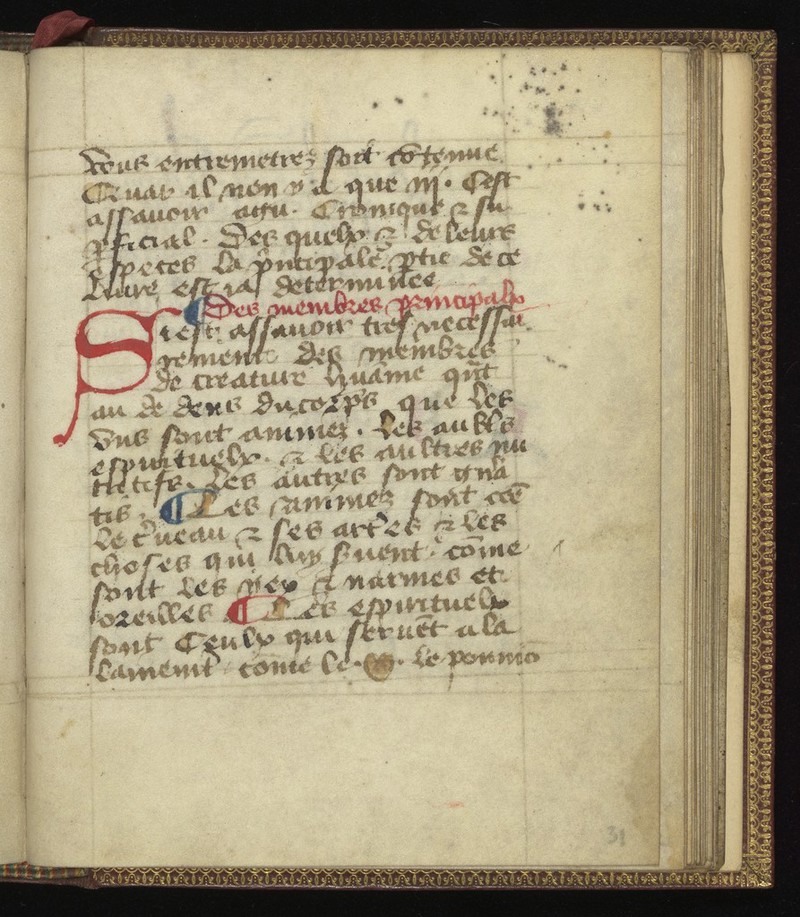 vous entremetrez sont cõtenue
Car il nen y a que iij. Cest
assavoir agu. Cronique ⁊ su
ꝑficial. Des quelx ⁊ de leurs
especes la p̃ncipale ꝑtie de ce
livre est ia determinee
¶ Des membres principalx
Si est assavoir tres necessai
rement des membres
de creature huaĩe
au de dens du corps que les
vns sont animez. les aultˢ
espirituelx. ⁊ les aultres nu
tritifs. Les autres sont gña
tis. ¶ Les animez sont cõe
le cˀveau ⁊ ses artˀes ⁊ les
choses qui luy sˀuent. cõme
sont les yex ⁊ narines et
oreilles ¶ Les espirituelx
sont Ceulx qui seruẽt a la
come le le poumõ
31